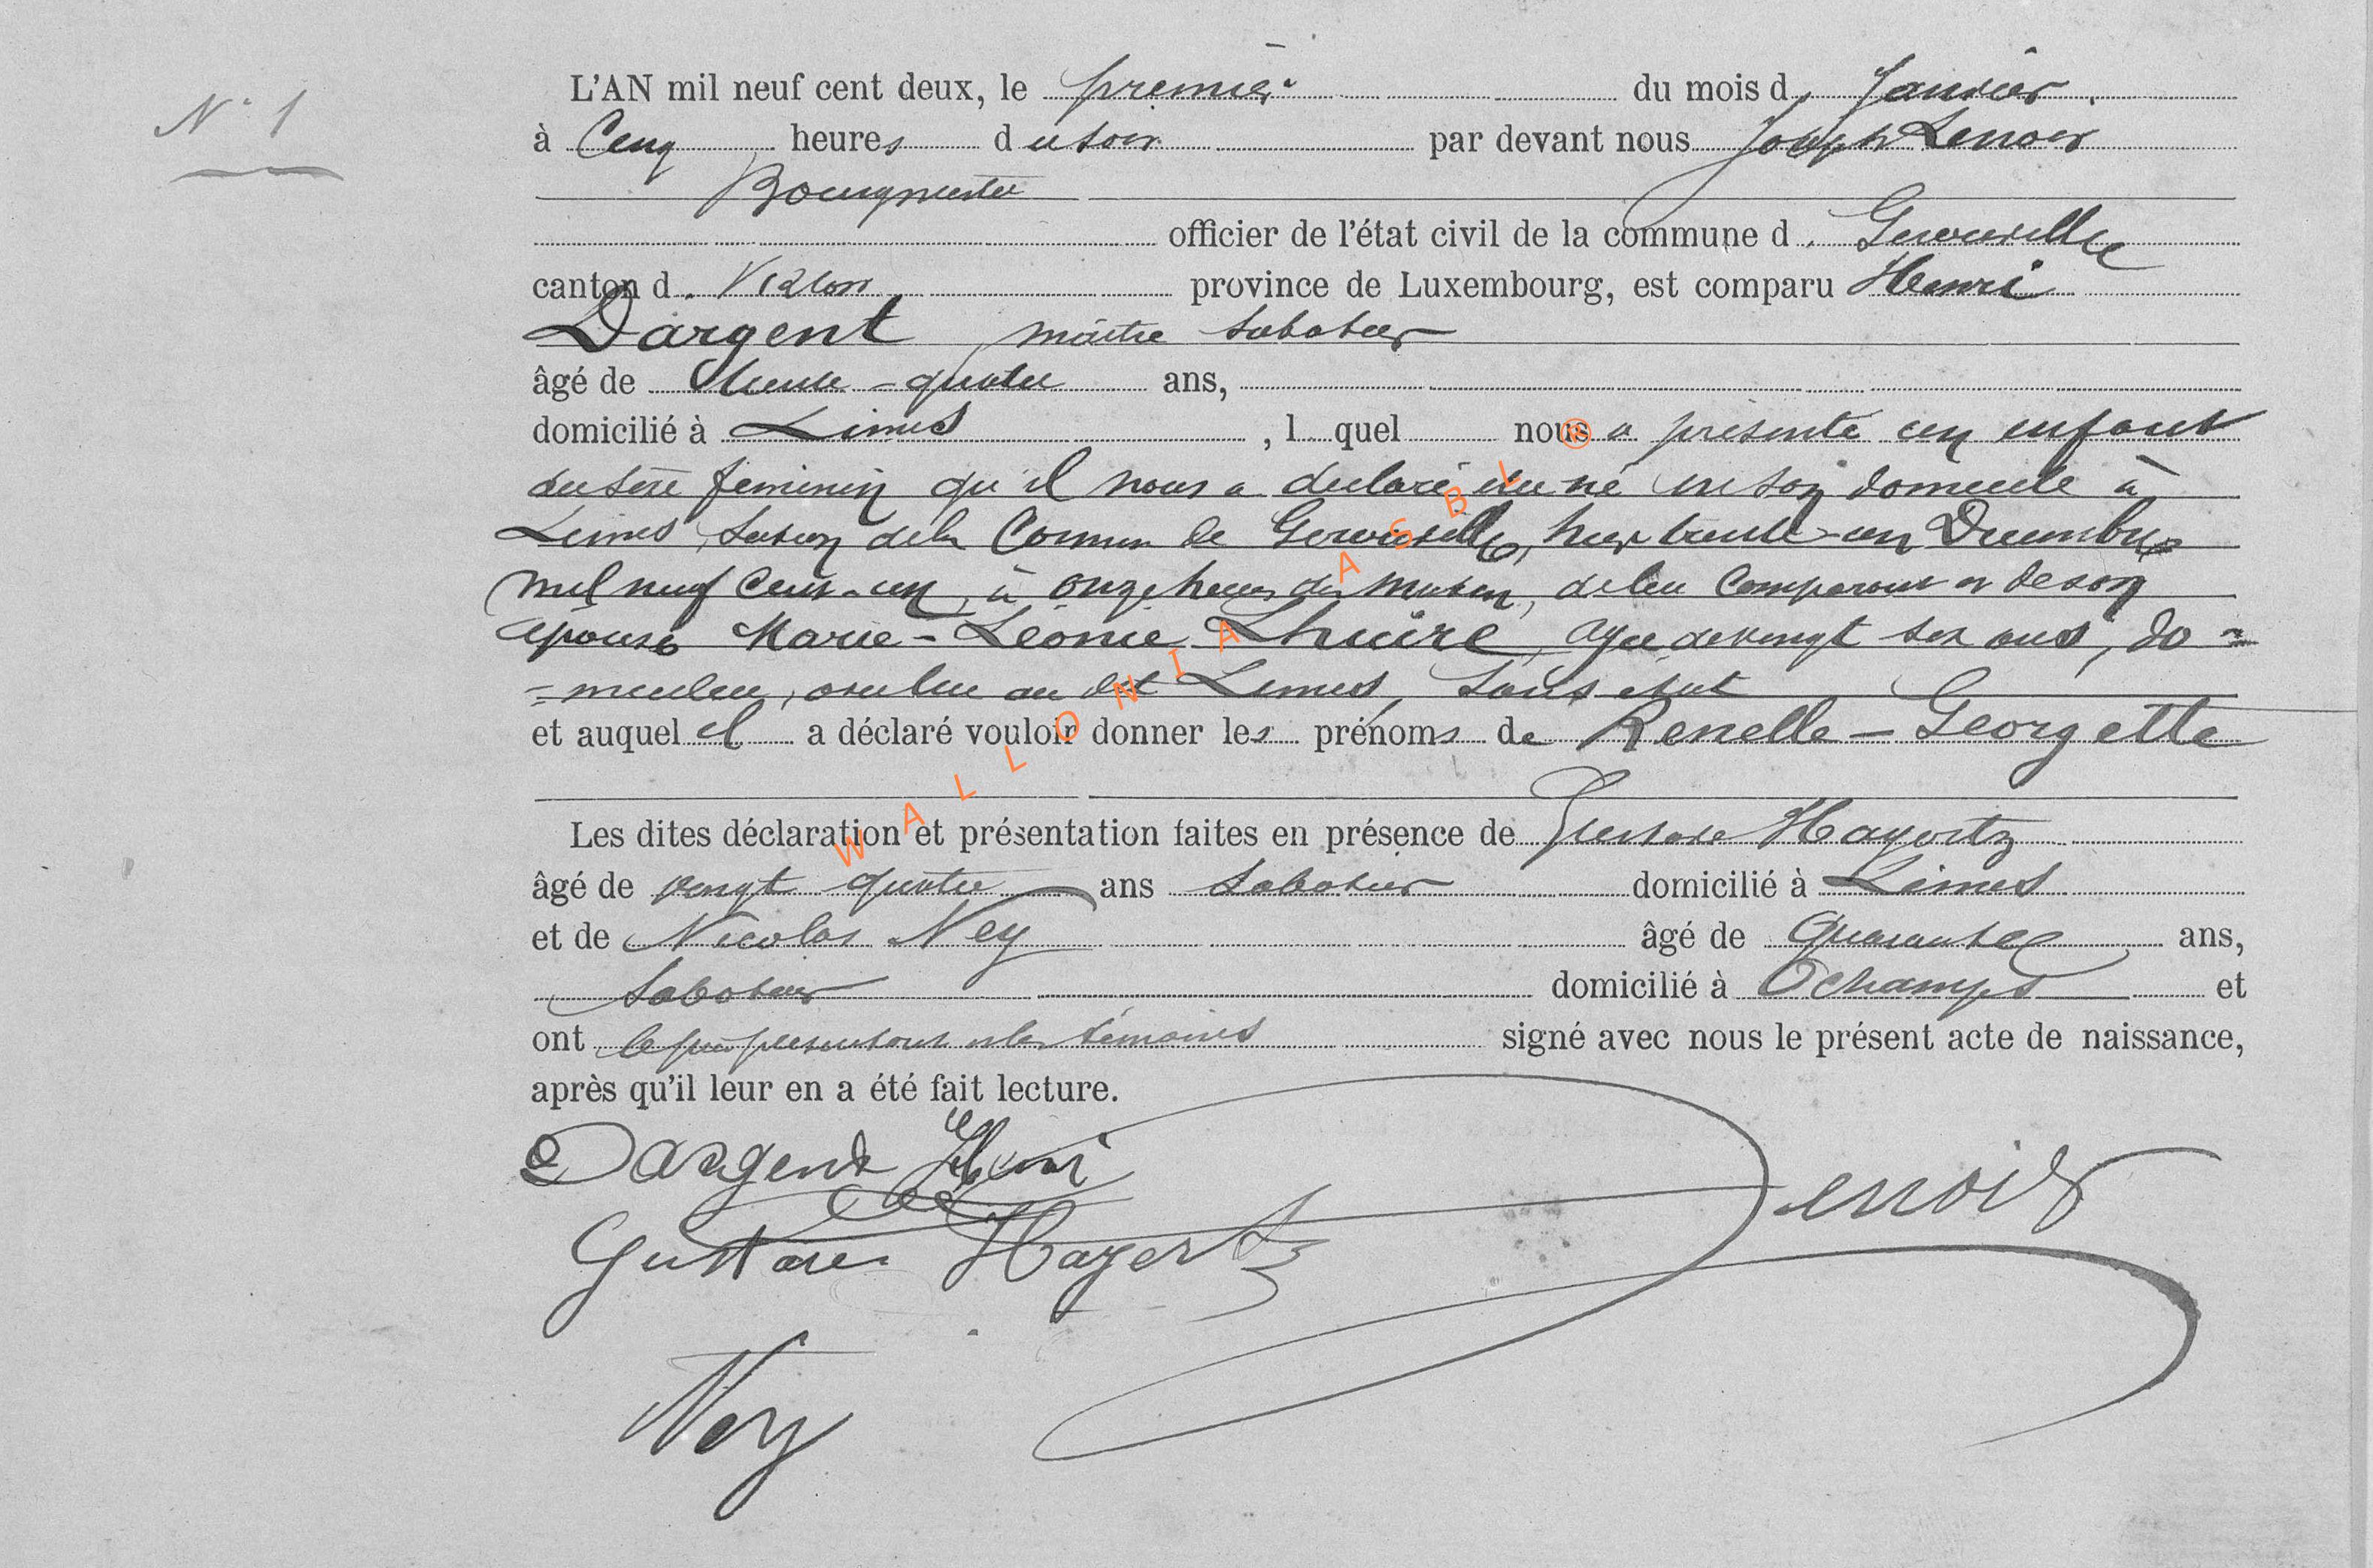 N° 1
L'AN mil neuf cent deux, le premier du mois d, Janvier
à Cinq heures du soir par devant nous Joseph Lenoir
Bourgmestre
officier de l'état civil de la commune d. Gerouville
canton d. Virton province de Luxembourg, est comparu Henri
Dargent, maître sabotier
âgé de trente-quatre ans,
domicilié à Limes, l quel nous a présenté un enfant
du sexe féminin qu'il nous a déclaré être né en son domicile à
Limes, section de la Commune de Gerouville, hier trente-un Décembre
mil neuf cent-un, à onze heures du matin, de lui comparant et de son
épouse Marie-Léonie Lhuire, âgée de vingt six ans, do=
=miciliée, au dit Limes, sans état
et auquel il a déclaré vouloir donner les prénoms de Renelle-Georgette
Les dites déclaration et présentation faites en présence de Gustave Hayertz
âgé de vingt quatre ans sabotier domicilié à Limes
et de Nicolas Ney âgé de quarante ans,
sabotier domicilié à Ochamps et
ont le père présentant et les témoins signé avec nous le présent acte de naissance,
après qu'il leur en a été fait lecture.
Dargent Henri
Lenoir
Gustave Hayertz
Ney
WALLONIA ASBL ®